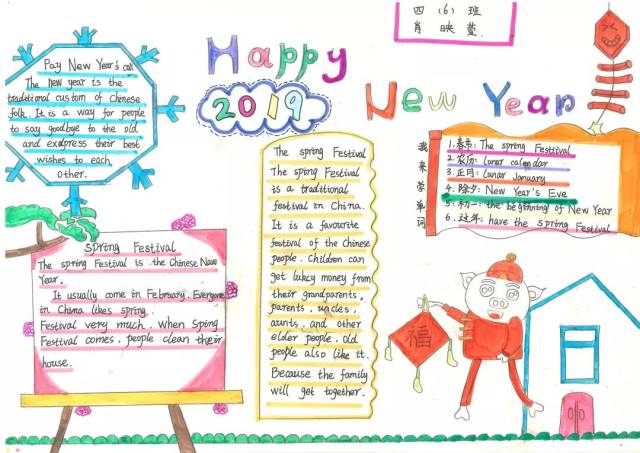 四（6）班
肖映萱
Happy
2019
New Year
Pay New Year's call
The new year is the
traditional custom of Chinese
folk. It is a way for people
to say goodbye to the old
and exdpress their best
wishes to each
other.
Spring Festival
The spring Festival is the Chinese Naw
Year.
It usually come in February. Everyone
in China likes spring.
Festival very much. When Sping
Festival comes, people clean their
house.
The spring Festival
The spring Festival
is a traditional
festival in China.
It is a favourite
festival of the Chinese
people. Children can
get lukcy money from
their grandparents,
parents, uncles,
aunts. and other
elder people. old
people also like it.
Because the family
will get together.
我来学单词
1.春节: The spring Festtival
2.农历: lunar calendar
3.正月: lunar January
4.除夕: New Year's Eve
5.初一: the beginning of New Year
6.过年: have the spring Festival
福